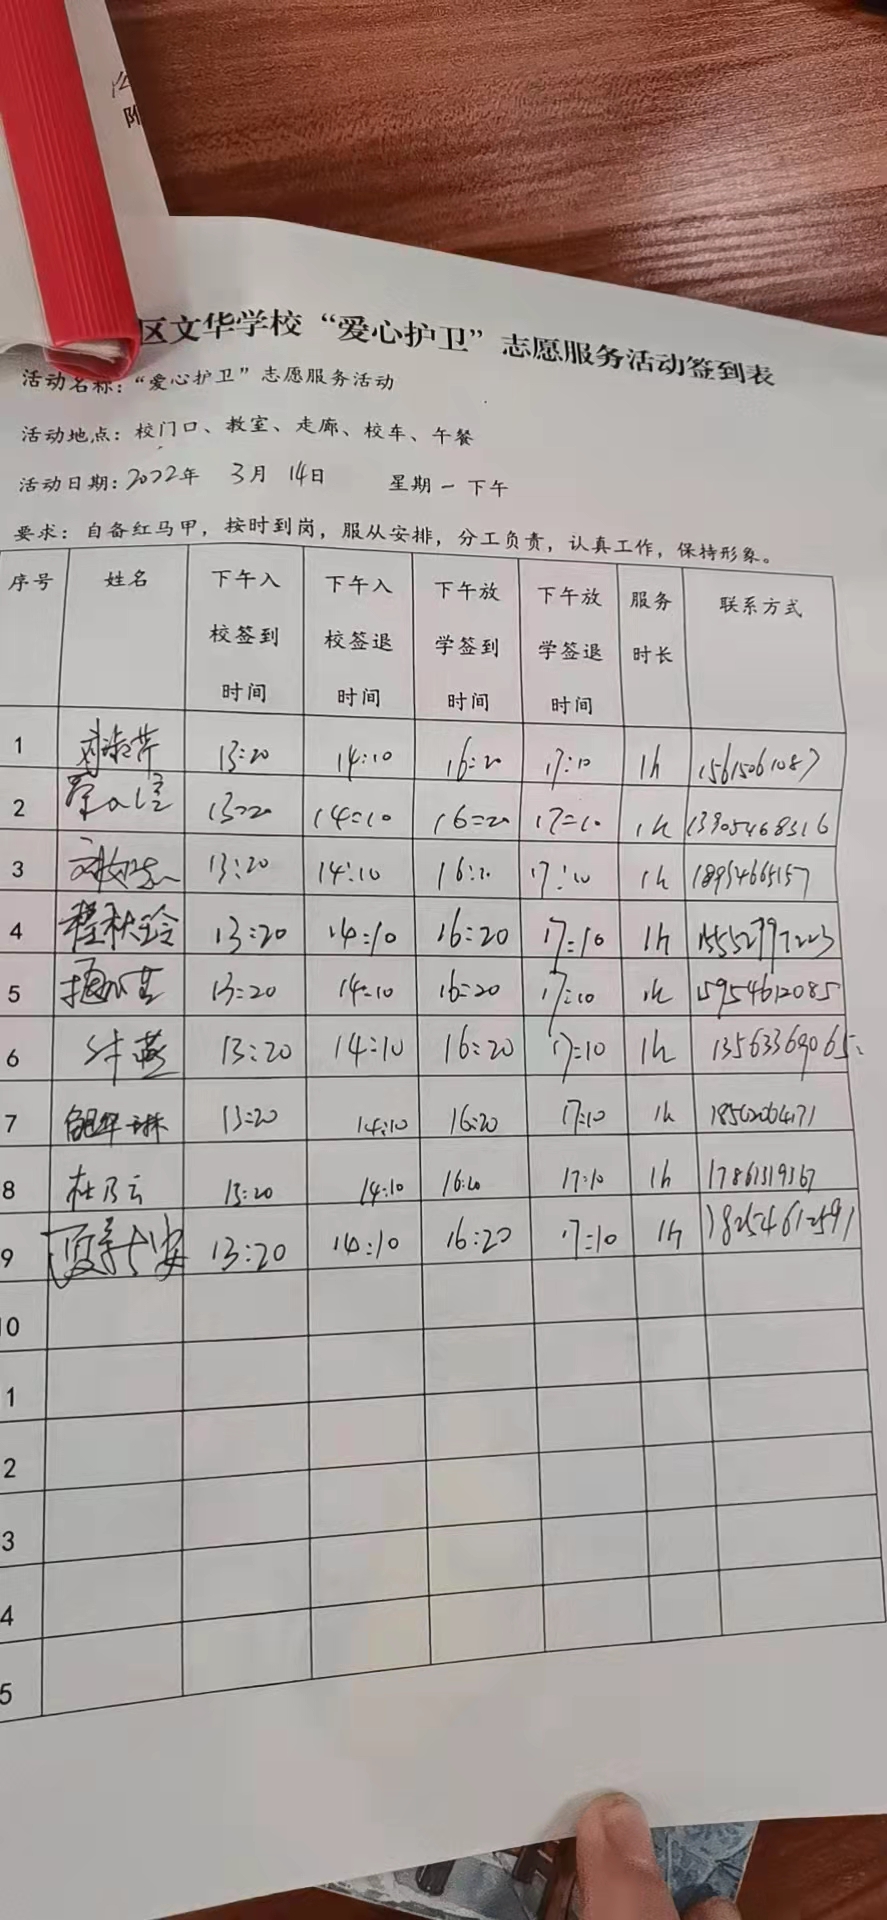 区文华学校“爱心护卫”志愿服务活动签到表
活动名称：“爱心护卫”志愿服务活动
活动地点：校门口、教室、走廊、校车、午餐
活动日期：2022年 3月 14日 星期一下午
要求：自备红马甲，按时到岗，服从安排，分工负责，认真工作，保持形象。
序号 姓名 下午入校签到时间 下午入校签退时间 下午放学签到时间 下午放学签退时间 服务时长 联系方式
1 13:20 14:10 16:20 17:10 1h 15615061087
2 13:20 14:10 16:20 17:10 1h 13905468316
3 13:20 14:10 16:20 17:10 1h 18954665157
4 程秋玲 13:20 14:10 16:20 17:10 1h 15552797223
5 13:20 14:10 16:20 17:10 1h 15954612085
6 牛燕 13:20 14:10 16:20 17:10 1h 13563369065
7 13:20 14:10 16:20 17:10 1h
8 杜乃云 13:20 14:10 16:20 17:10 1h 17861319367
9 13:20 14:10 16:20 17:10 1h 18254612591
10
1
2
3
4
5